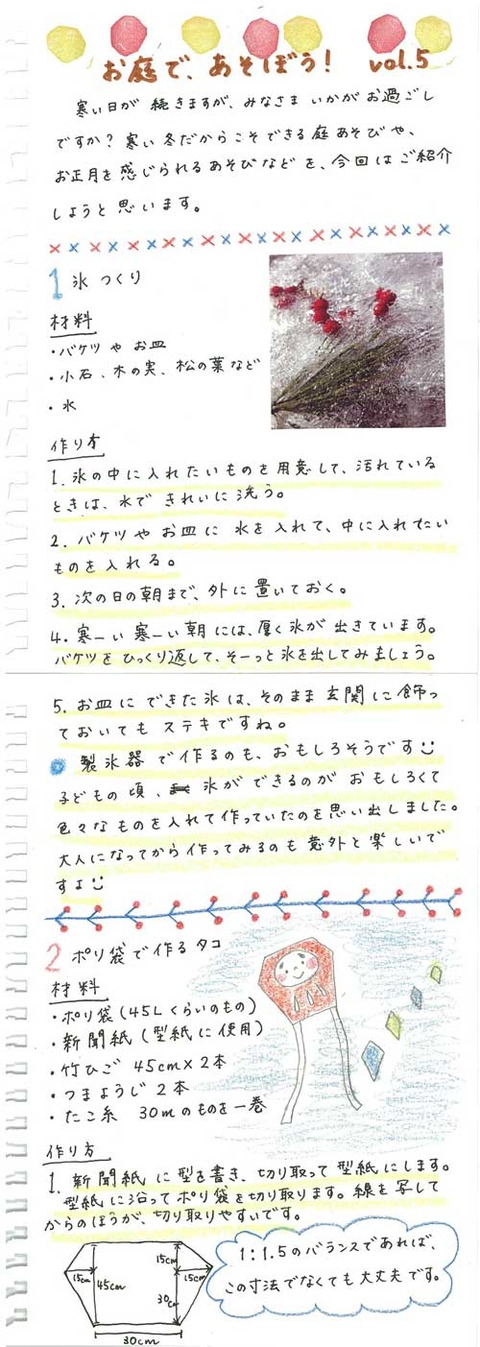 お庭で、あそぼう! vol.5
寒い日が 続きますが、みなさま いかがお過ごし
ですか? 寒い冬だからこそできる庭あそびや、
お正月を感じられるあそびなどを、今回はご紹介
しようと思います。
1 氷つくり
材料
・バケツやお皿
・小石、木の実、松の葉など
・水
作り方
1. 氷の中に入れたいものを用意して、汚れている
ときは、水できれいに洗う。
2. バケツやお皿に 水を入れて、中に入れたい
ものを入れる。
3. 次の日の朝まで、外に置いておく。
4. 寒ーい寒ーい朝には、厚く氷が出きています。
バケツをひっくり返して、そーっと氷を出してみましょう。
5. お皿にできた氷は、そのまま玄関に飾っ
ておいてもステキですね。
製氷器で作るのも、おもしろそうです
子どもの頃、氷ができるのがおもしろくて
色々なものを入れて作っていたのを思い出しました。
大人になってから作ってみるのも意外と楽しいで
すよ
2 ポリ袋で作るタコ
材料
・ポリ袋(45Lくらいのもの)
・新聞紙(型紙に使用)
・竹ひご 45cm×2本
・つまようじ 2本
・たこ糸 30mのものを一巻
作り方
1. 新聞紙に型を書き、切り取って型紙にします。
型紙に沿ってポリ袋を切り取ります。線を写して
からのほうが、切り取りやすいです。
15cm
45cm
15cm
15cm
30cm
30cm
1:1.5のバランスであれば、
この寸法でなくても大丈夫です。